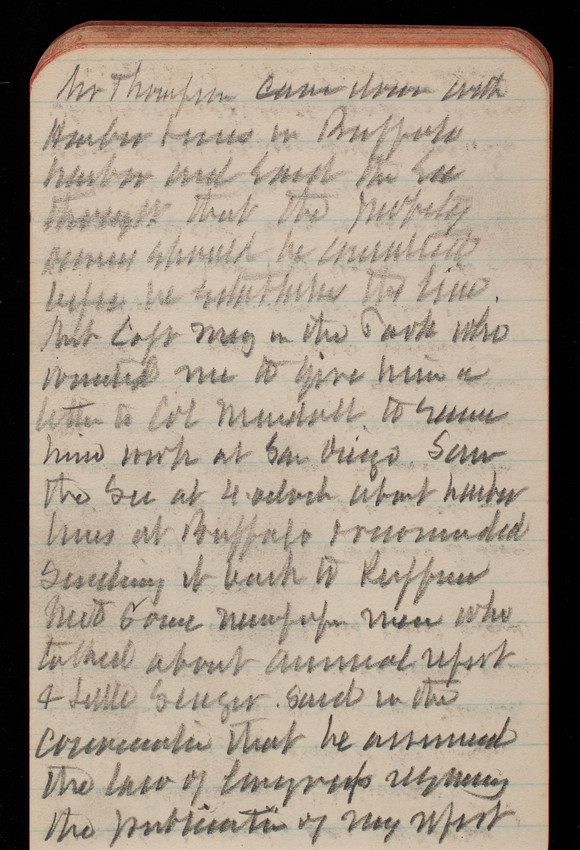 Mr Thompson came down with
Harbor Lines in Buffalo
harbor and said the Sec
thought that the property
owners should be consulted
before he establishes the line.
Met Capt May in the Park who
wanted me to give him a
letter to Col Mendell to secure
him work at San Diego. Saw
the Sec at 4 oclock about harbor
lines at Buffalo & recommended
sending it back to
Met some newspaper men who
talked about annual report
& Little Senger. Said in the
conversation that he assumed
the law of Congress requiring
the publication of my report